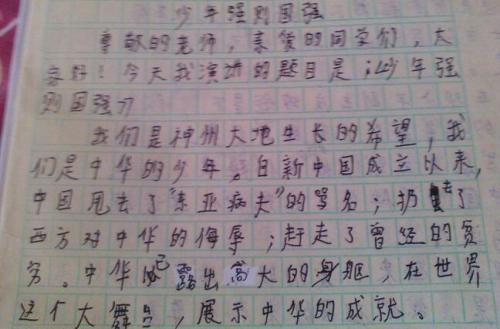 少年强则国强
尊敬的老师，亲爱的同学们，大
家好！今天我演讲的题目是《少年强
则国强》
我们是神州大地生长的希望，我
们是中华的少年。自新中国成立以来，
中国甩去了“东亚病夫”的骂名；扔去了
西方对中华的侮辱；赶走了曾经的贫
穷。中华已露出高大的身躯，在世界
这个大舞台，展示中华的成就。